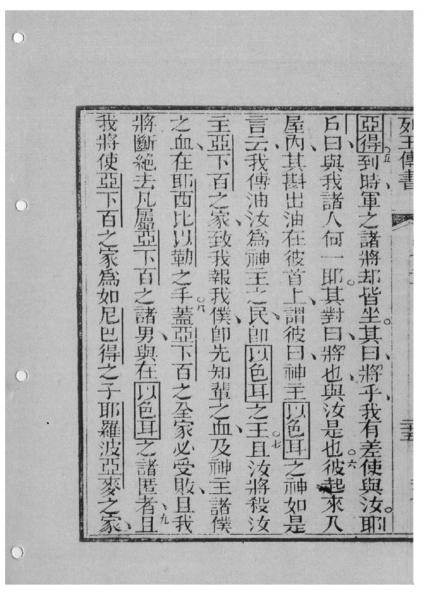 王傳書
亞得到時軍之諸將却皆坐其曰將乎我有差使與汝耶
五
戶曰與我諸人何一耶其對曰將也與汝是也彼起來入
六
屋內其斟出油在彼首上謂彼曰神主以色耳之神如是
言云我傅油汝為神主之民卽以色耳之王且汝將殺汝
七
主亞下百之家致我報我僕卽先知輩之血及神主諸僕
之血在耶西比以勒之手蓋亞下百之全家必受敗且我
八
將斷絕去凡屬亞下百之諸男與在以色耳之諸匿者且
九
我將使亞下百之家為如尼巴得之子耶羅波亞麥之家